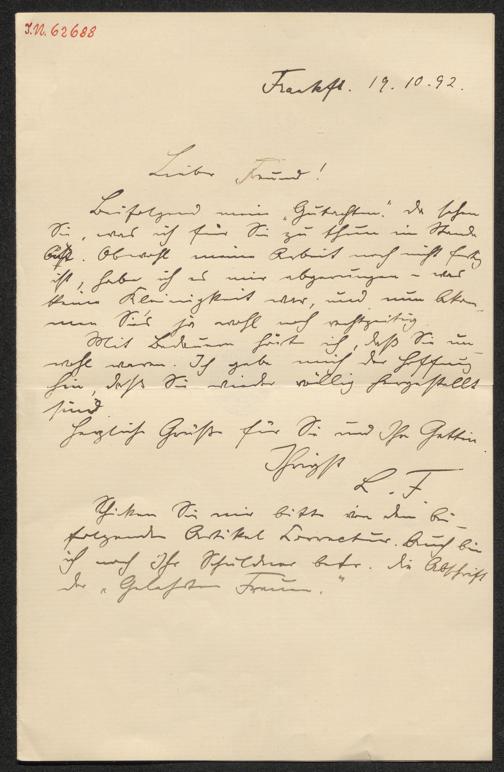 J.N. 62688
Frankft. 19.10.92.
Lieber Freund!
Beifolgend mein „Gutachten“. Da sehen
Sie, was ich für Sie zu thun im Stande
bin. Obwohl meine Arbeit noch nicht fertig
ist, habe ich es mir abgerungen – was
keine Kleinigkeit war, und nun kom-
men Sie's ja wohl noch rechtzeitig.
Mit Bedauern hörte ich, daß Sie un-
wohl waren. Ich gebe mich der Hoffnung
hin, daß Sie wieder völlig hergestellt
sind.
Herzliche Grüße für Sie und Ihre Gattin.
Ihrigst
L. F.
Schicken Sie mir bitte von dem bei-
folgenden Artikel Correctur. Auch bin
ich noch Ihr Schuldner betr. die Abschrift
der „Gelehrten Frauen.“